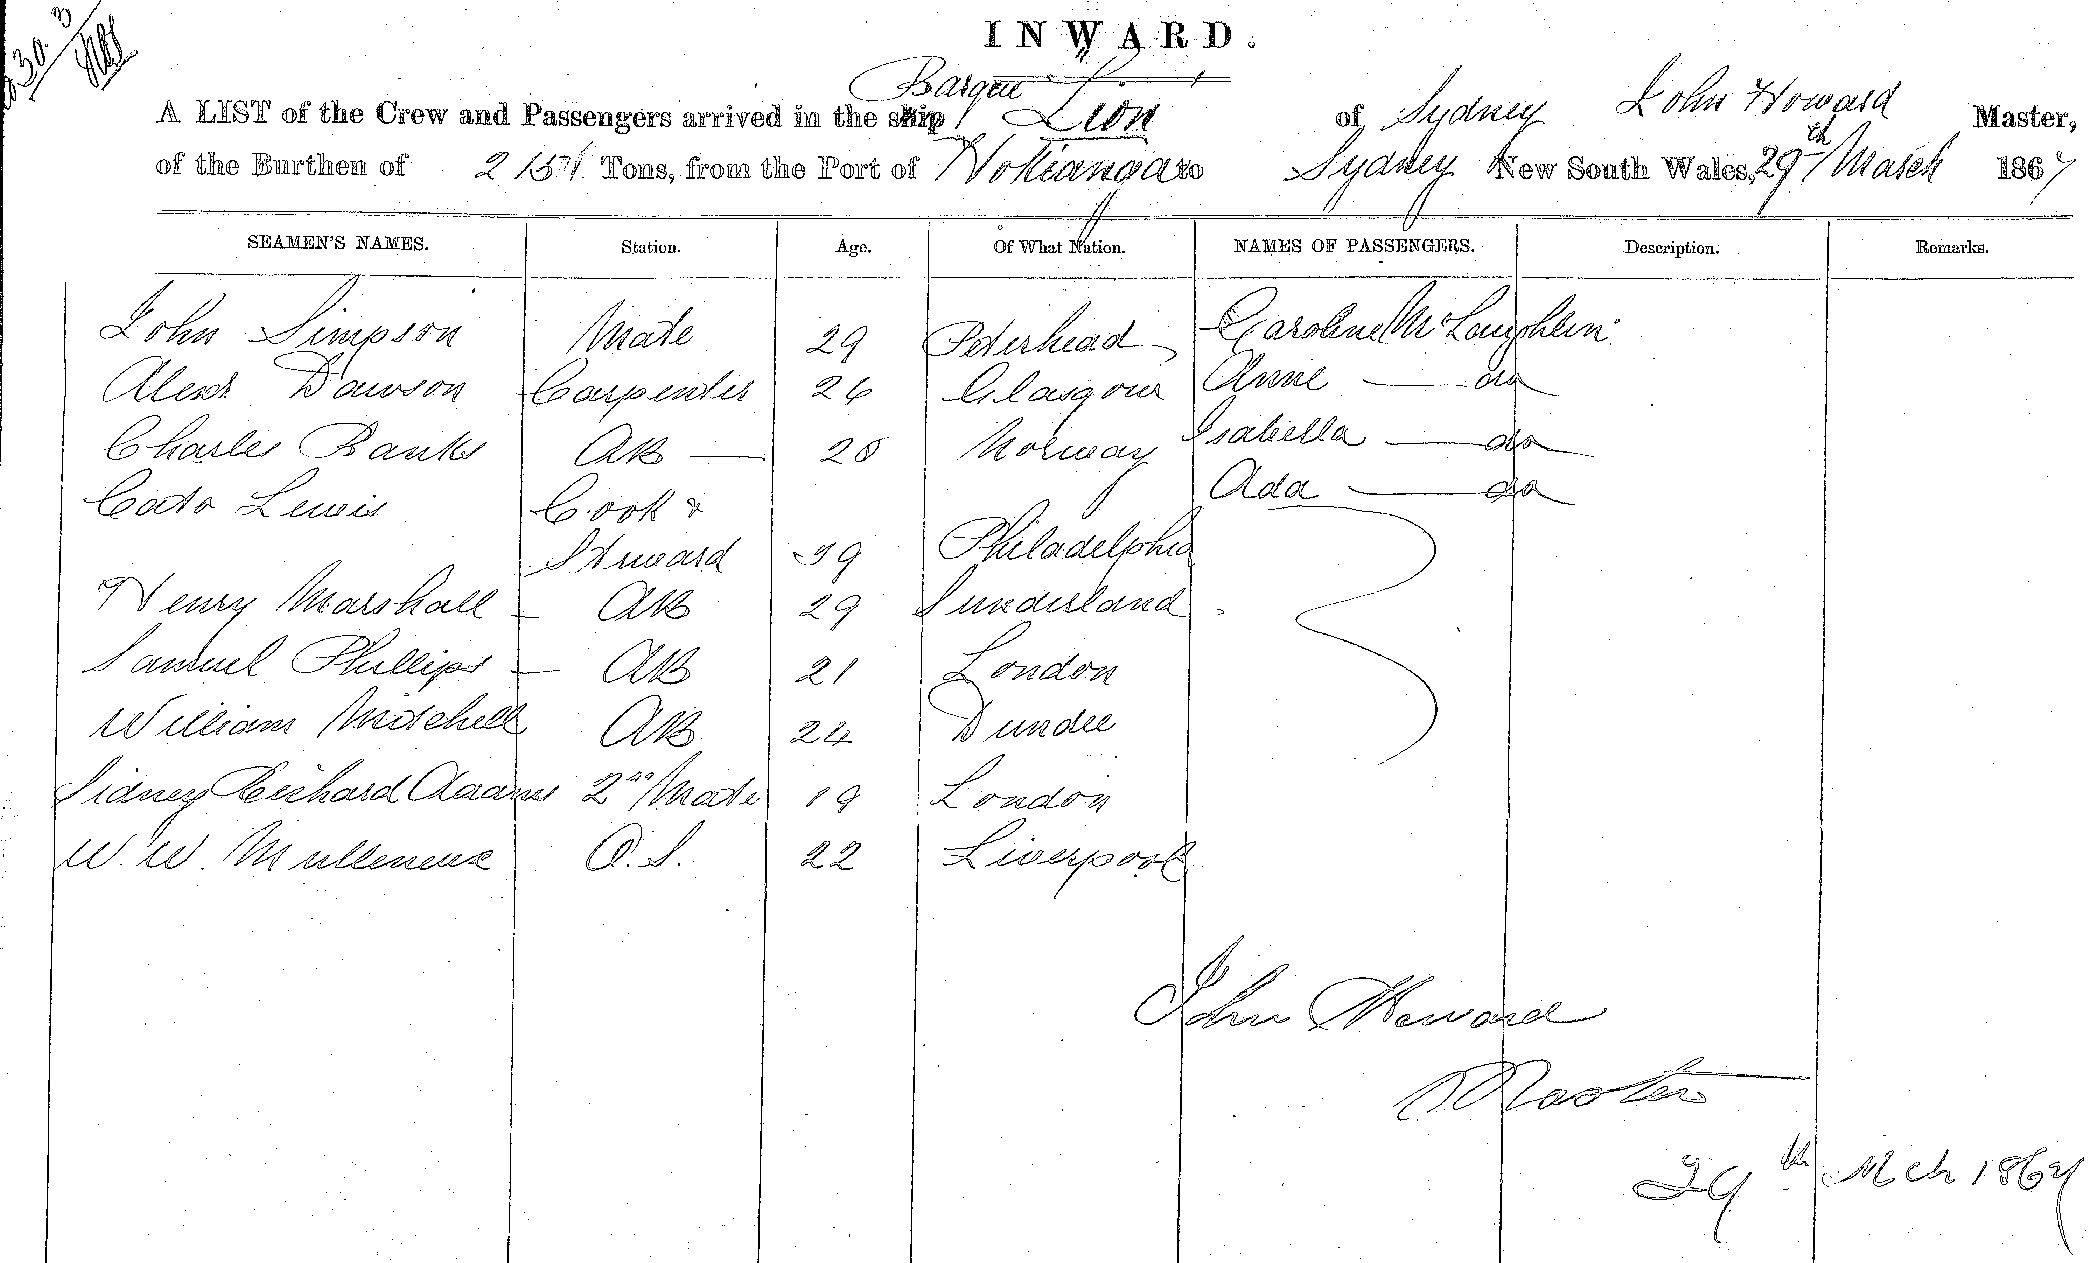 INWARD.
Barque
A LIST of the Crew and Passengers arrived in the ship Lion of Sydney John Howard Master,
of the Burthen of Tons, from the Port of Hokianga to Sydney New South Wales, 29th March 1867
SEAMEN'S NAMES. Station. Age. Of What Nation. NAMES OF PASSENGERS. Description. Remarks.
John Simpson Mate 29 Peterhead Caroline McLaughlin
Alexr Dawson Carpenter 26 Glasgow Anne — do
Charles Banks AB — 28 Norway Isabella — do
Cato Lewis Cook & Ada — do
Steward 39 Philadelphia
Henry Marshall — AB 29 Sunderland
Samuel Phillips — AB 21 London
William Mitchell AB 24 Dundee
Sidney Richard Adams 2nd Mate 19 London
W. W. Mulleneux O.S. 22 Liverpool
John Howard
Master
29th Mch 1867